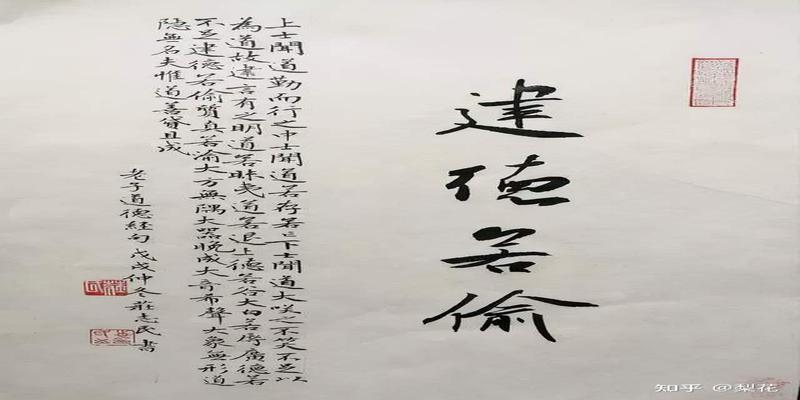 建德若偷
上士聞道勤而行之中士聞道若存若亡下士聞道大咲之不笑不足以
為道故建言有之明道若昧夷道若退上德若谷大白若辱廣德若
不足建德若偷質真若渝大方無隅大器晚成大音希聲大象無形道
隱無名夫惟道善貸且成
老子道德經句戊戌仲冬莊志民書
知乎 @梨花